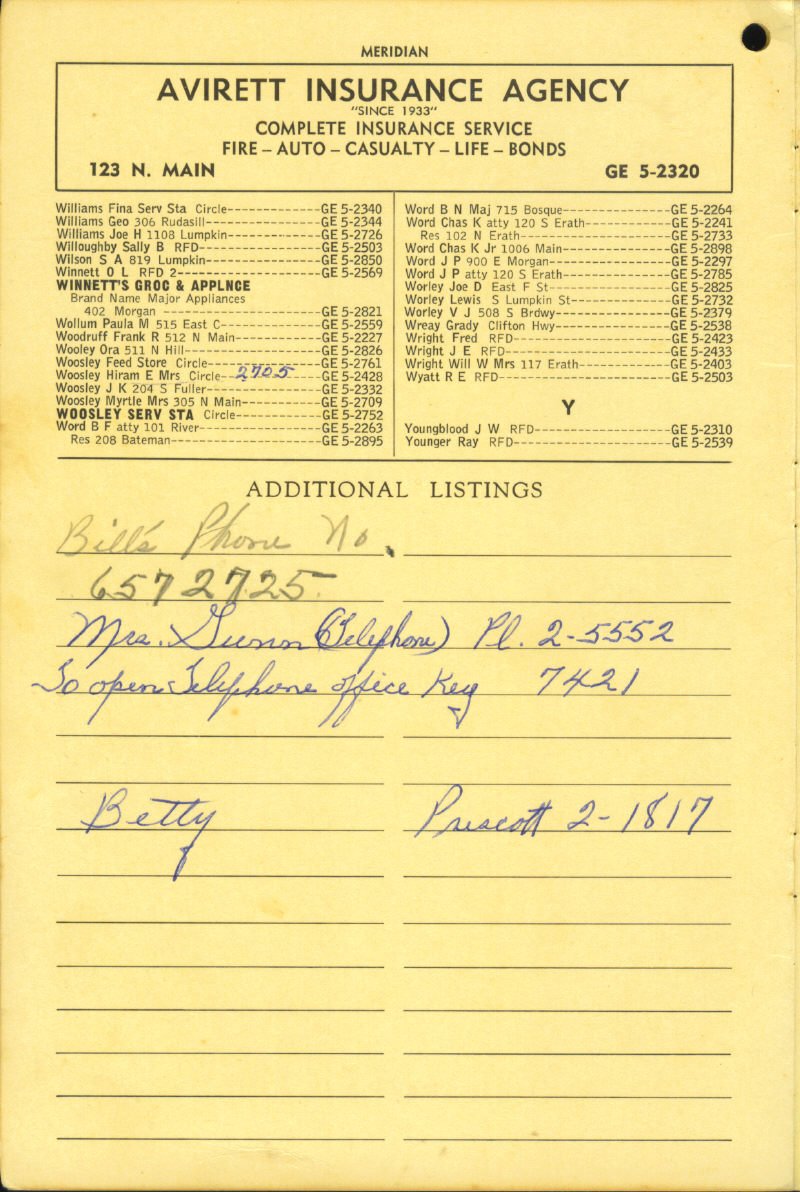 MERIDIAN
AVIRETT INSURANCE AGENCY
"SINCE 1933"
COMPLETE INSURANCE SERVICE
FIRE – AUTO – CASUALTY – LIFE – BONDS
123 N. MAIN GE 5-2320
Williams Fina Serv Sta Circle--------------GE 5-2340
Williams Geo 306 Rudasill-----------------GE 5-2344
Williams Joe H 1108 Lumpkin--------------GE 5-2726
Willoughby Sally B RFD------------------GE 5-2503
Wilson S A 819 Lumpkin-----------------GE 5-2850
Winnett O L RFD 2---------------------GE 5-2569
WINNETT'S GROC & APPLNCE
Brand Name Major Appliances
402 Morgan ------------------------GE 5-2821
Wollum Paula M 515 East C---------------GE 5-2559
Woodruff Frank R 512 N Main-------------GE 5-2227
Wooley Ora 511 N Hill-------------------GE 5-2826
Woosley Feed Store Circle----------------GE 5-2761
Woosley Hiram E Mrs Circle--2725--GE 5-2428
Woosley J K 204 S Fuller-----------------GE 5-2332
Woosley Myrtle Mrs 305 N Main------------GE 5-2709
WOOSLEY SERV STA Circle-------------GE 5-2752
Word B F atty 101 River------------------GE 5-2263
Res 208 Bateman----------------------GE 5-2895
Word B N Maj 715 Bosque----------------GE 5-2264
Word Chas K atty 120 S Erath-------------GE 5-2241
Res 102 N Erath----------------------GE 5-2733
Word Chas K Jr 1006 Main----------------GE 5-2898
Word J P 900 E Morgan------------------GE 5-2297
Word J P atty 120 S Erath----------------GE 5-2785
Worley Joe D East F St------------------GE 5-2825
Worley Lewis S Lumpkin St---------------GE 5-2732
Worley V J 508 S Brdwy-----------------GE 5-2379
Wreay Grady Clifton Hwy-----------------GE 5-2538
Wright Fred RFD-----------------------GE 5-2423
Wright J E RFD------------------------GE 5-2433
Wright Will W Mrs 117 Erath--------------GE 5-2403
Wyatt R E RFD-------------------------GE 5-2503
Y
Youngblood J W RFD--------------------GE 5-2310
Younger Ray RFD-----------------------GE 5-2539
ADDITIONAL LISTINGS
Bill's Phone No.
6572725
Mrs. Gunn (Telephone) Pl. 2-5552
To open Telephone office Key 7421
Betty Prescott 2-1817